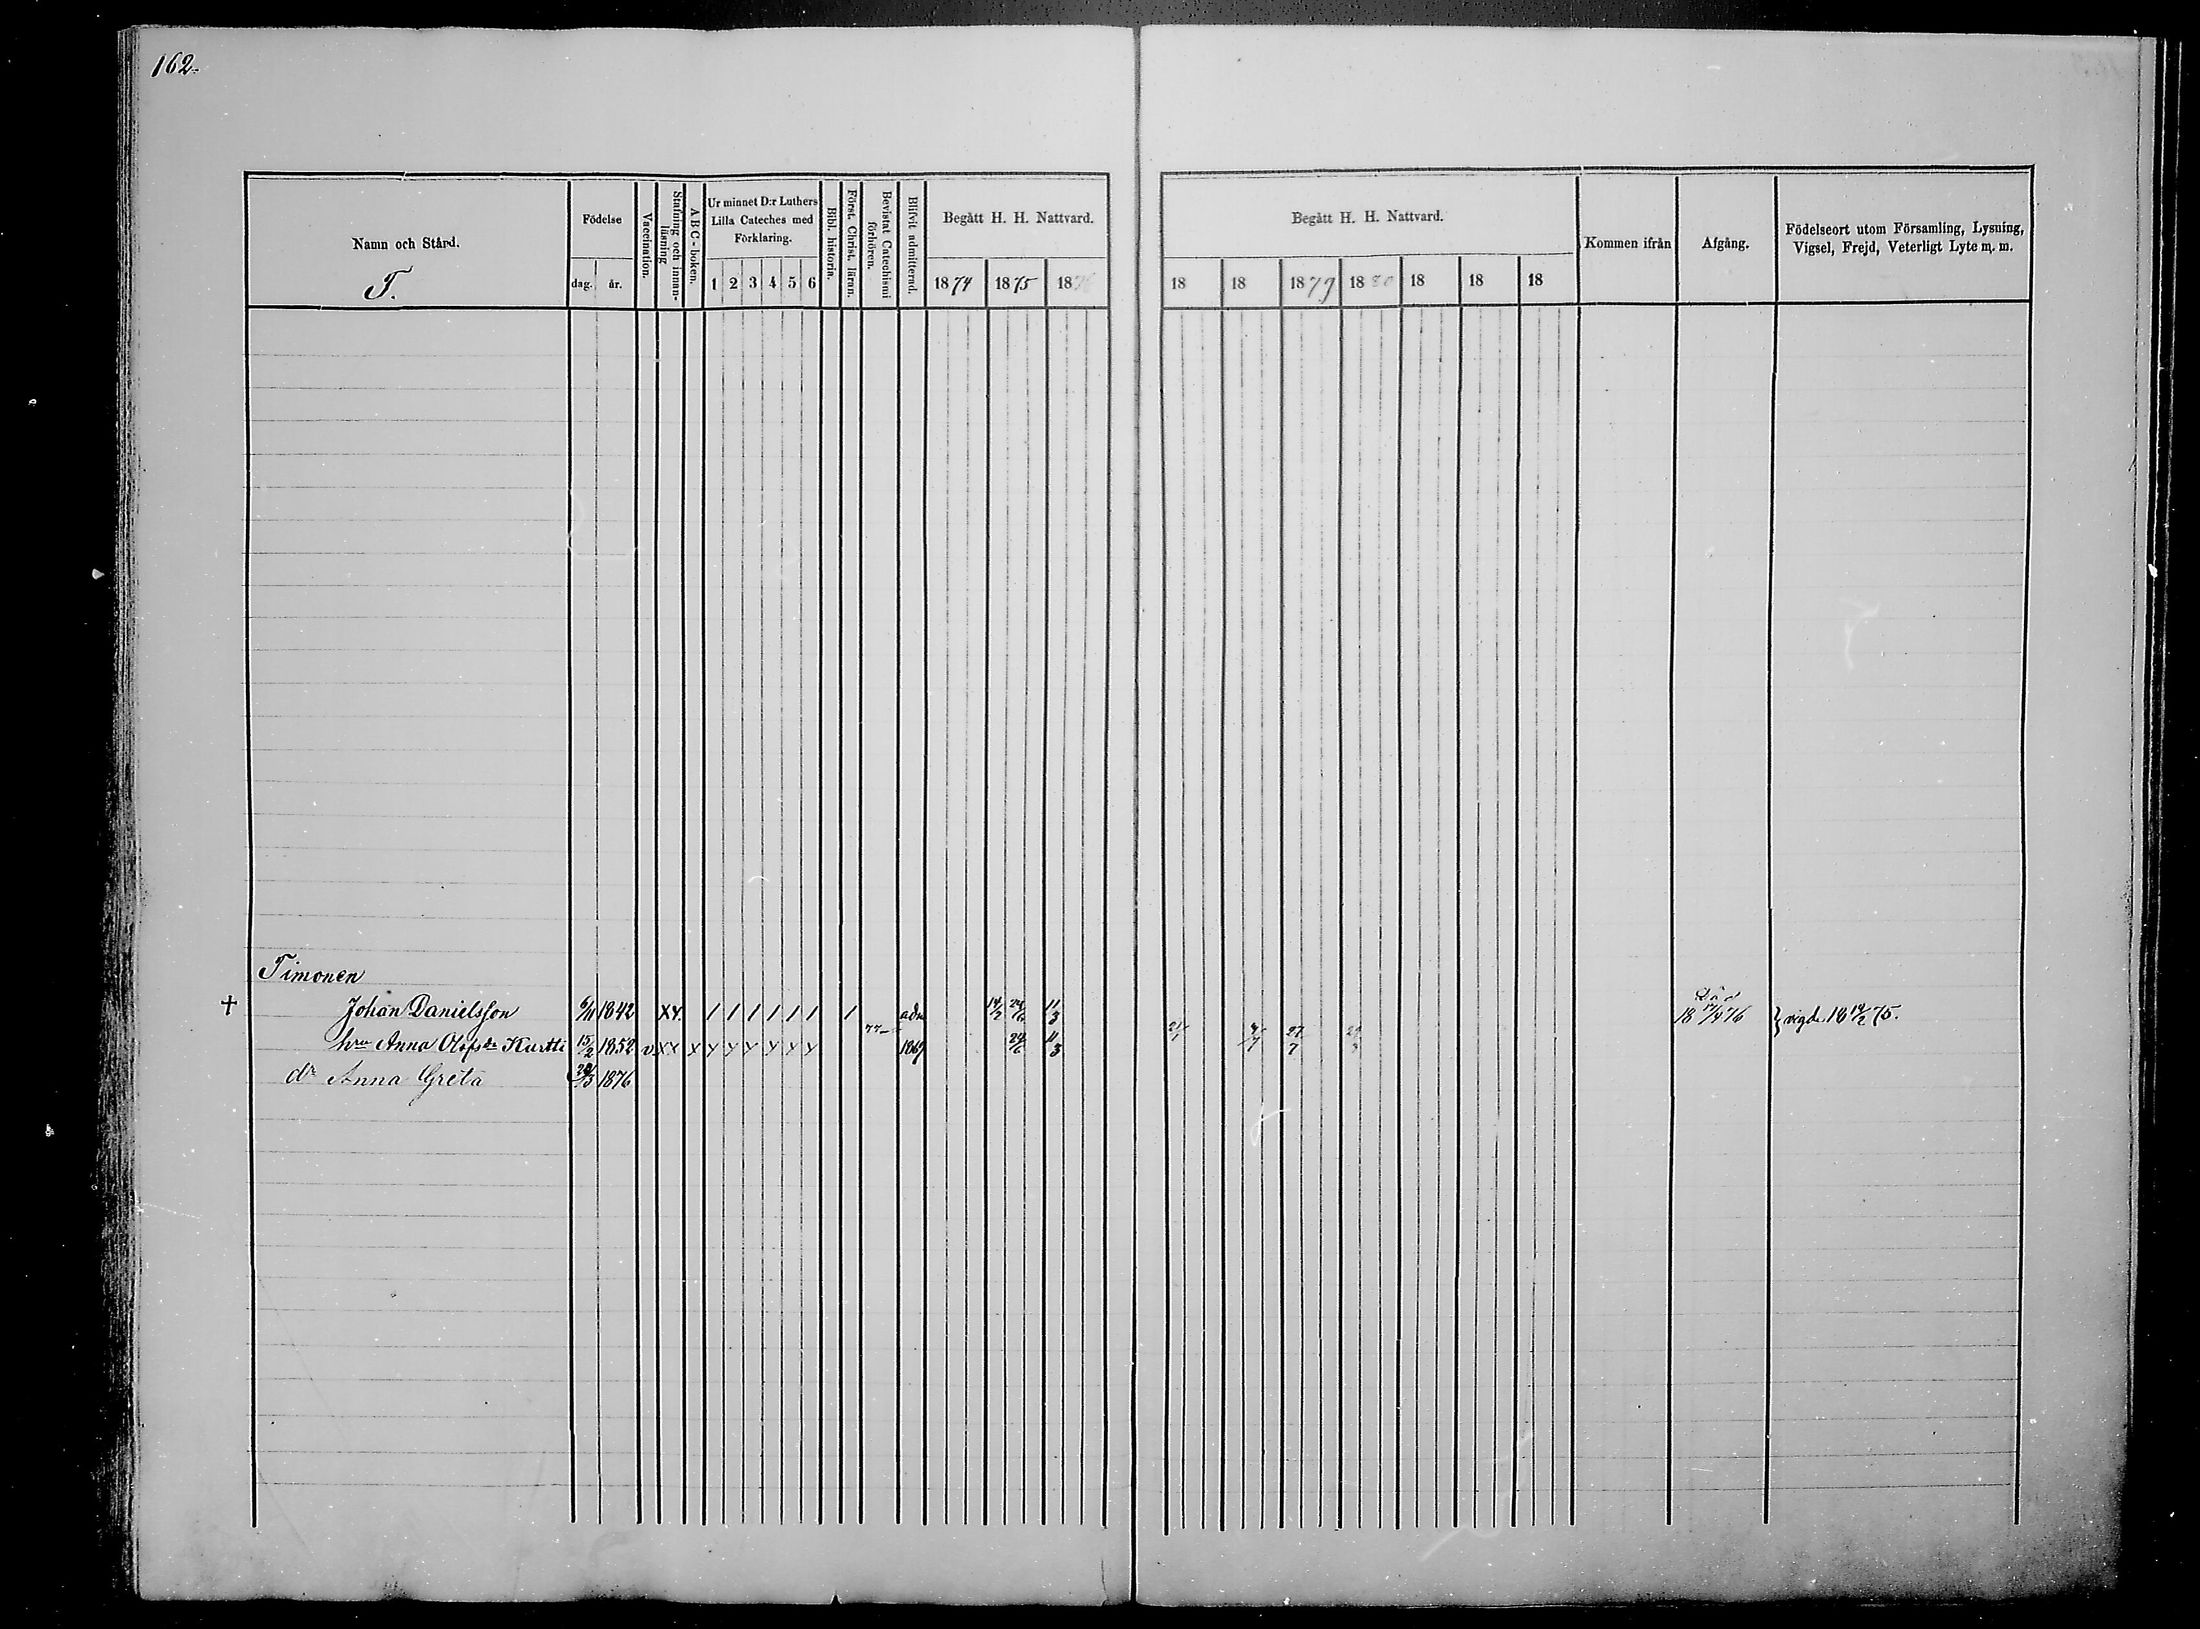 162.
Namn och Stånd.
T.
Födelse
dag. år.
Vaccination.
Stafning och innanläsning
ABC-boken.
Ur minnet D:r Luthers Lilla Cateches med Förklaring.
1 2 3 4 5 6
Bibl. historia.
Först. Christ. läran.
Bevistat Catechismi förhören.
Blifvit admitterad.
Begått H. H. Nattvard.
1874 1875 1876
Begått H. H. Nattvard.
18 18 1879 1880 18 18 18
Kommen ifrån
Afgång.
Födelseort utom Församling, Lysning, Vigsel, Frejd, Veterligt Lyte m. m.
Timonen
† Johan Danielsson 6/11 1842 XX 1 1 1 1 1 1 1 adm 14/2 24/6 11/3 Död 18 17/4 76 } vigde 18 14/2 75.
hru Anna Olofsdr Kurtti 15/2 1852 v XX X X X X X X X 77- 1867 24/6 11/3 27/7
dr Anna Greta 1876